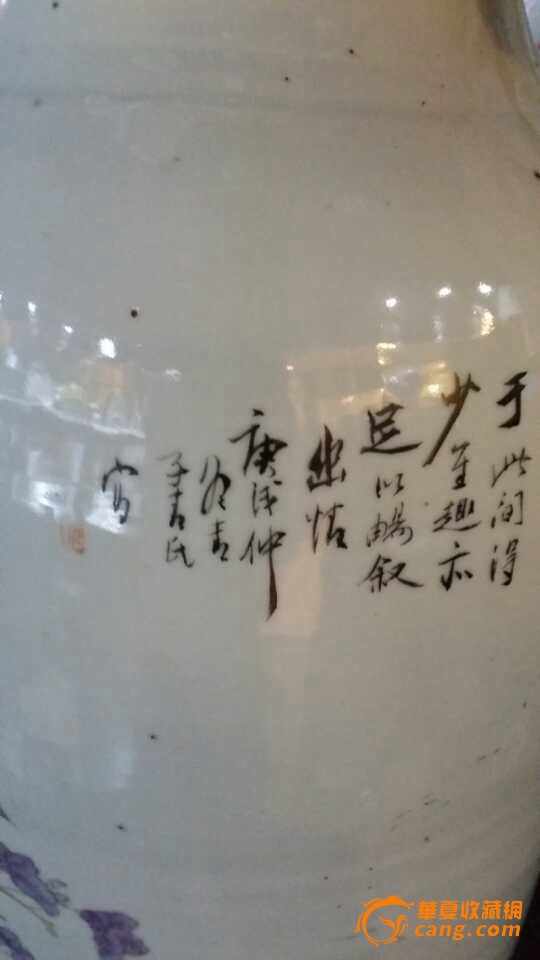 于此间得
少至趣亦
足以暢叙
幽情
庚戌仲
冬
氏
写
華夏收藏網
cang.com